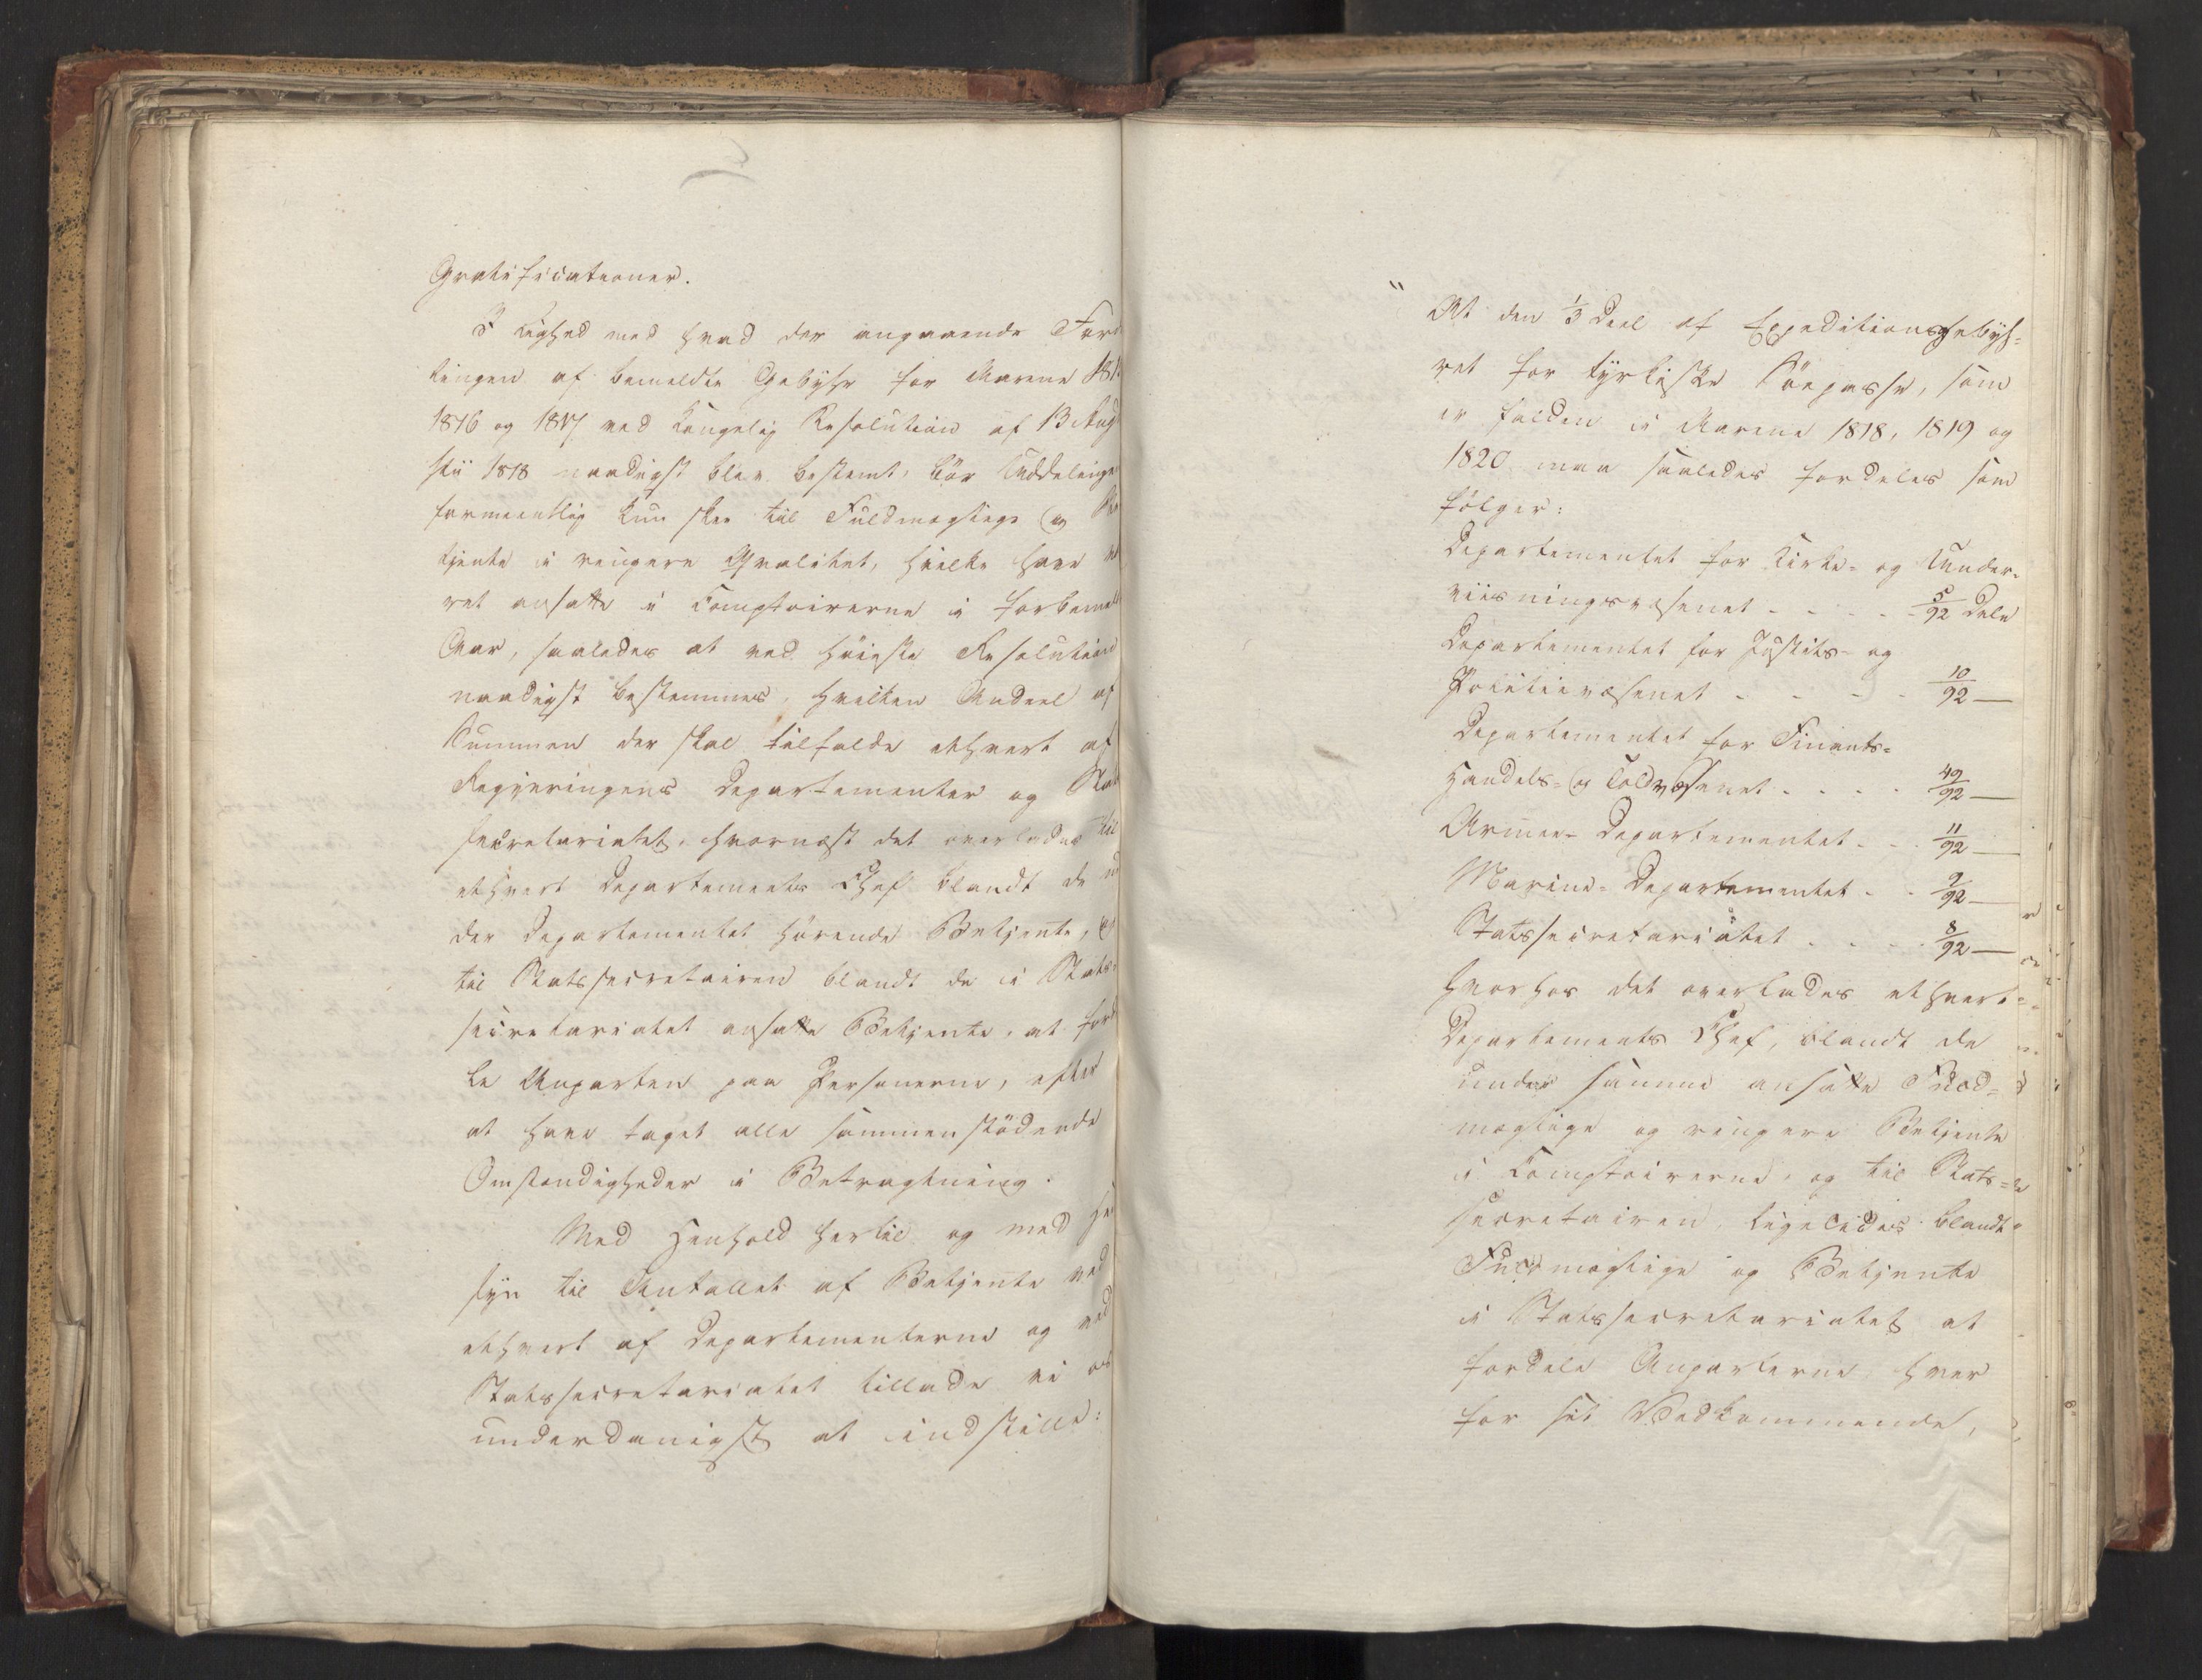 Gratificationer.
I Lighed med hvad der angaaende Ford
lingen af bemeldte Gebyhr for Aarene 181
1816 og 1817 ved Kongelig Resolution af 13 Aug
stii 1818 naadigst blev bestemt, bör Uddelinge
formeentlig kun skee til Fuldmægtige og Be
tjente i ringere Qvalitet, hvilke have v
ret ansatte i Comptoirerne i forbemel
Aar, saaledes at ved höieste Resolution
naadigst bestemmes, hvilken Andeel af
Summen der skal tilfalde ethvert af
Regjeringens Departementer og Stat
secretariatet, hvornæst det overlades til
ethvert Departements Chef blandt de un
der Departementet hörende Betjente, og
til Statssecretairen blandt de i Stats-
secretariatet ansatte Betjente, at forde
le Anparten paa Personerne, efter
at have taget alle sammenstödende
Omstændigheder i Betragtning.
Med Henhold hertil og med Hen
syn til Antallet af Betjente ved
ethvert af Departementerne og ved
Statssecretariatet tillade vi os
underdanigst at indstille:
" At den 1/3 Deel af Expeditionsgebyh-
ret for tyrkiske Söepasse, som
er falden i Aarene 1818, 1819 og
1820 maa saaledes fordeles som
fölger:
Departementet for Kirke- og Under-
viisningsvæsenet - - - - 5/92 Dele
Departementet for Justits- og
Politievæsenet - - - - 10/92 —
Departementet for Finants-
Handels- og Toldvæsenet - - - - 49/92 —
Armee-Departementet - - 11/92 —
Marine-Departementet - - 9/92 —
Statssecretariatet - - - - 8/92 —
hvorhos det overlades ethvert
Departements Chef, blandt de
under samme ansatte Fuld-
mægtige og ringere Betjente
i Comptoirerne, og til Stats-
secretairen, ligeledes blandt
Fuldmægtige og Betjente
i Statssecretariatet at
fordele Anparterne, hver
for sit Vedkommende,